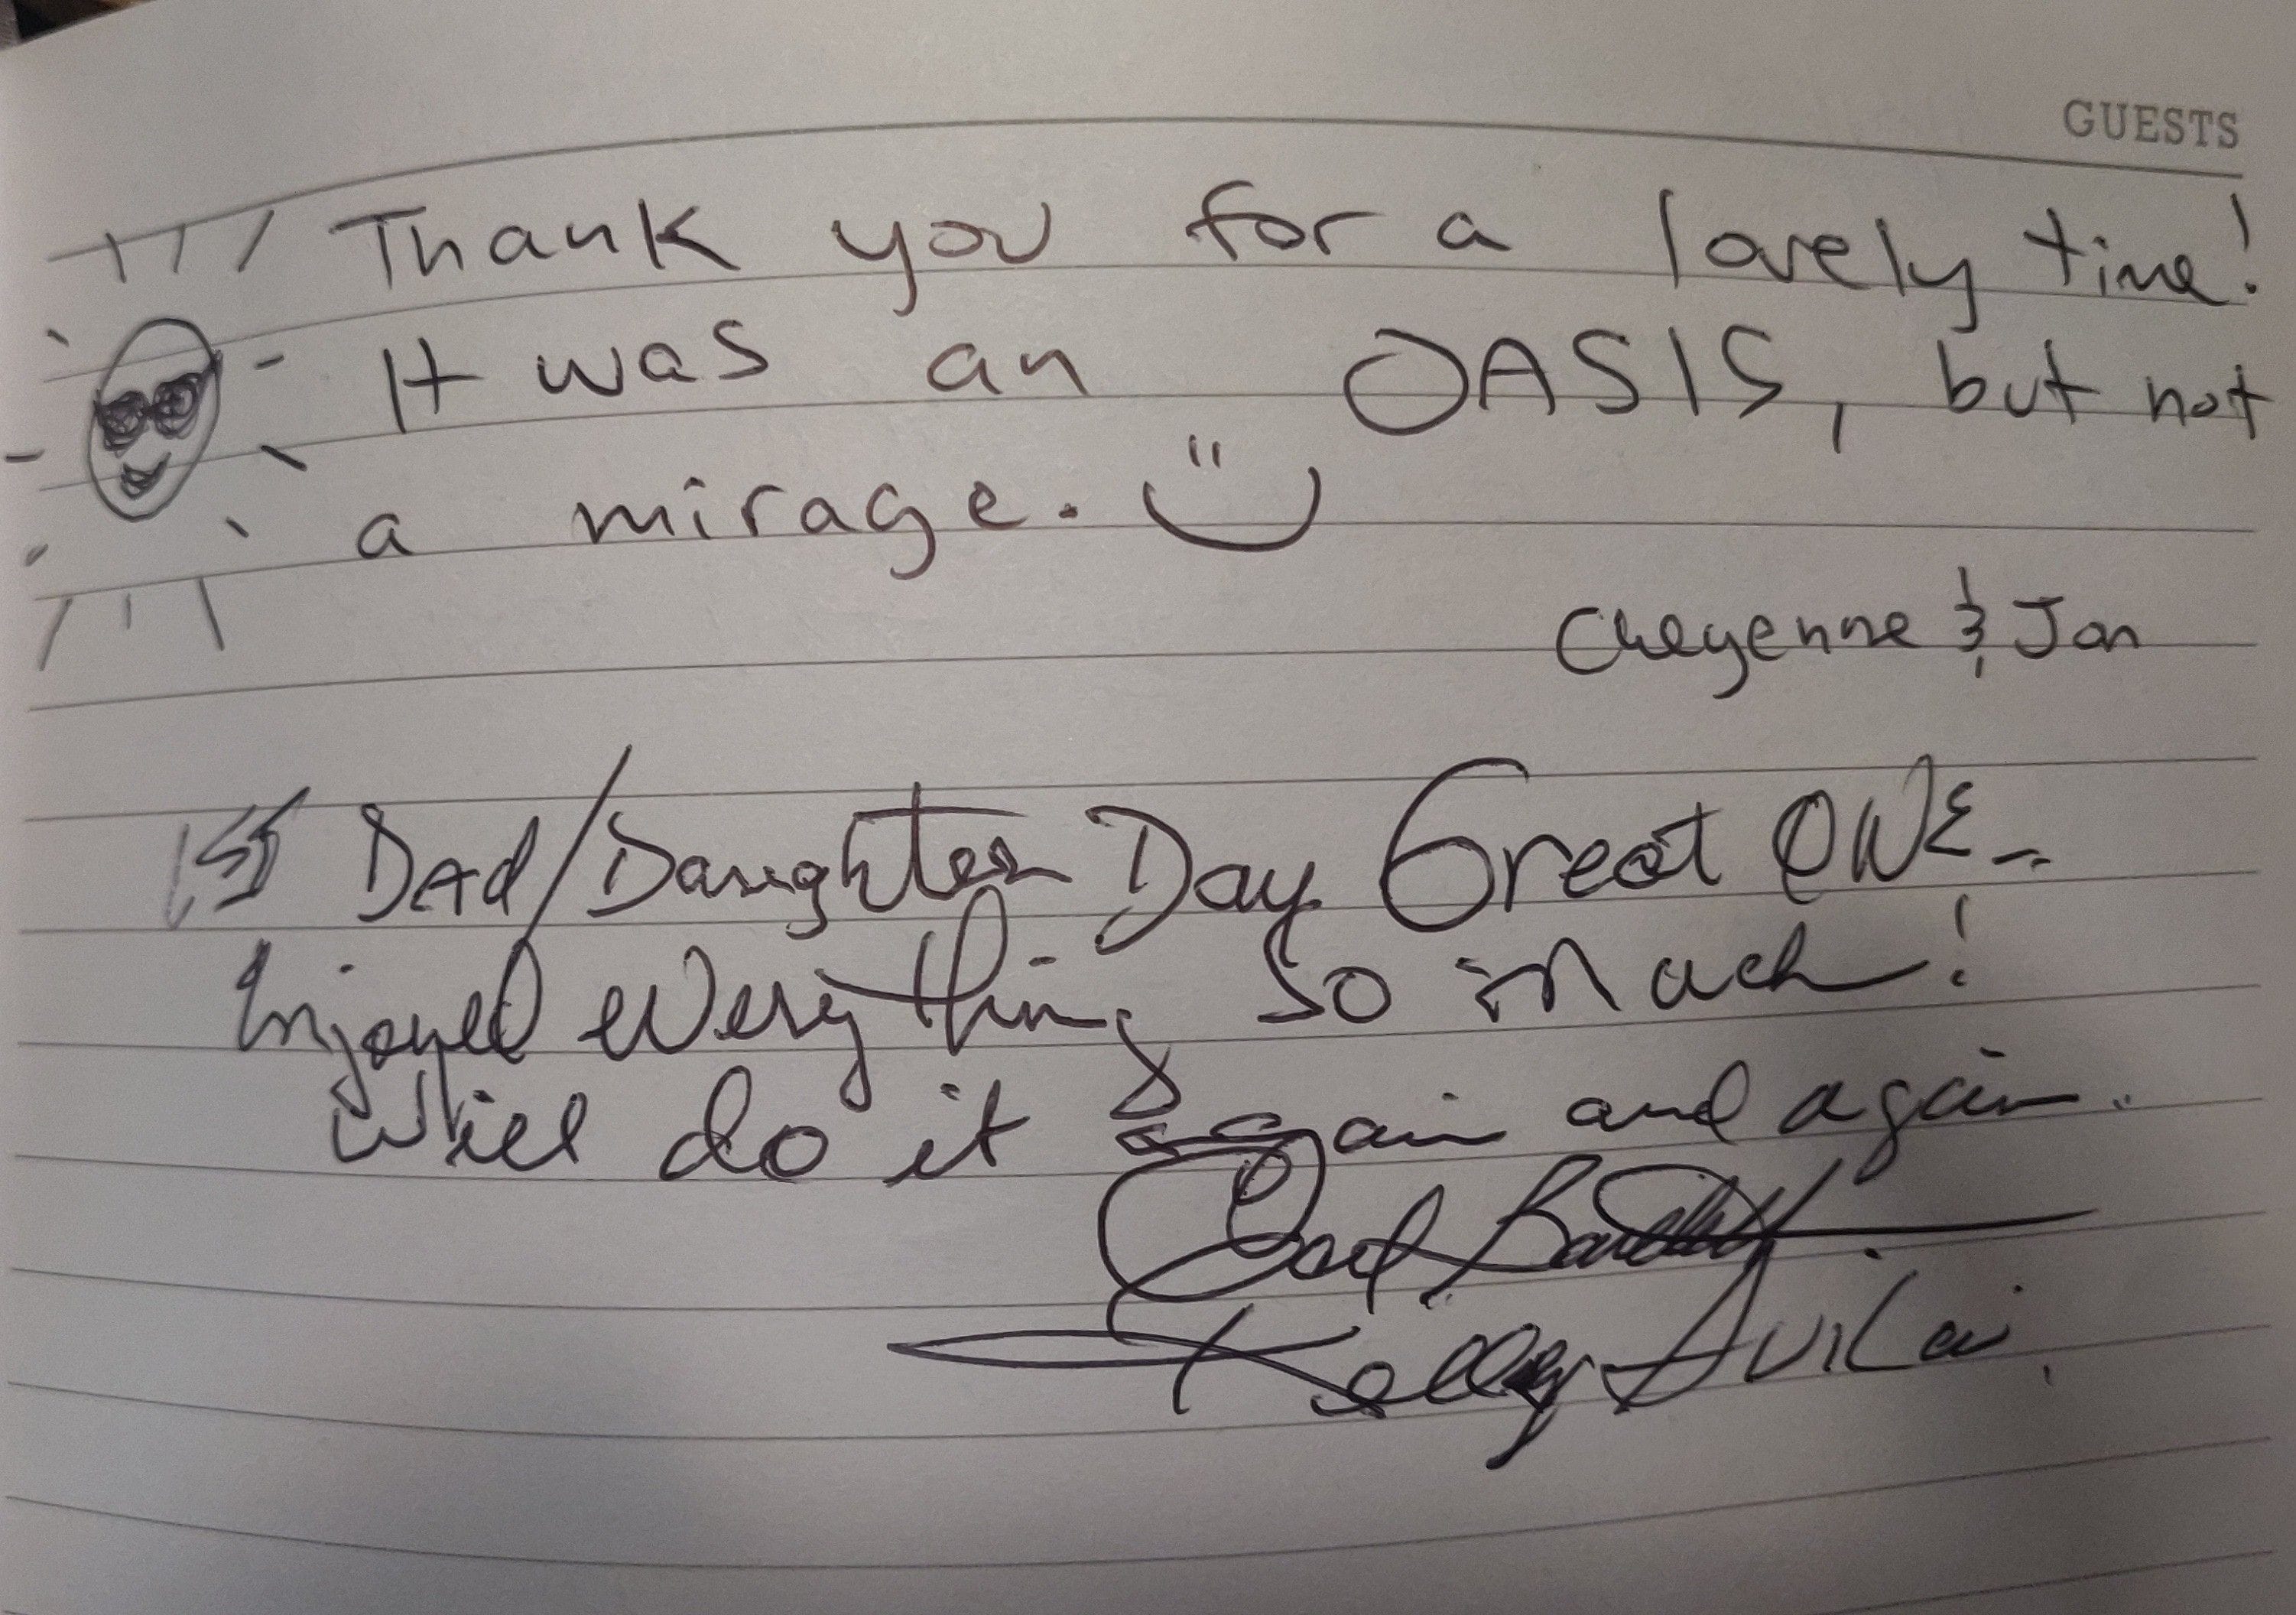 GUESTS
Thank you for a lovely time!
It was an OASIS, but not
a mirage.
Cheyenne & Jon
1st Dad/Daughter Day Great ONE --
Enjoyed everything so much!
will do it again and again..
Bartlett
Kelly Avila